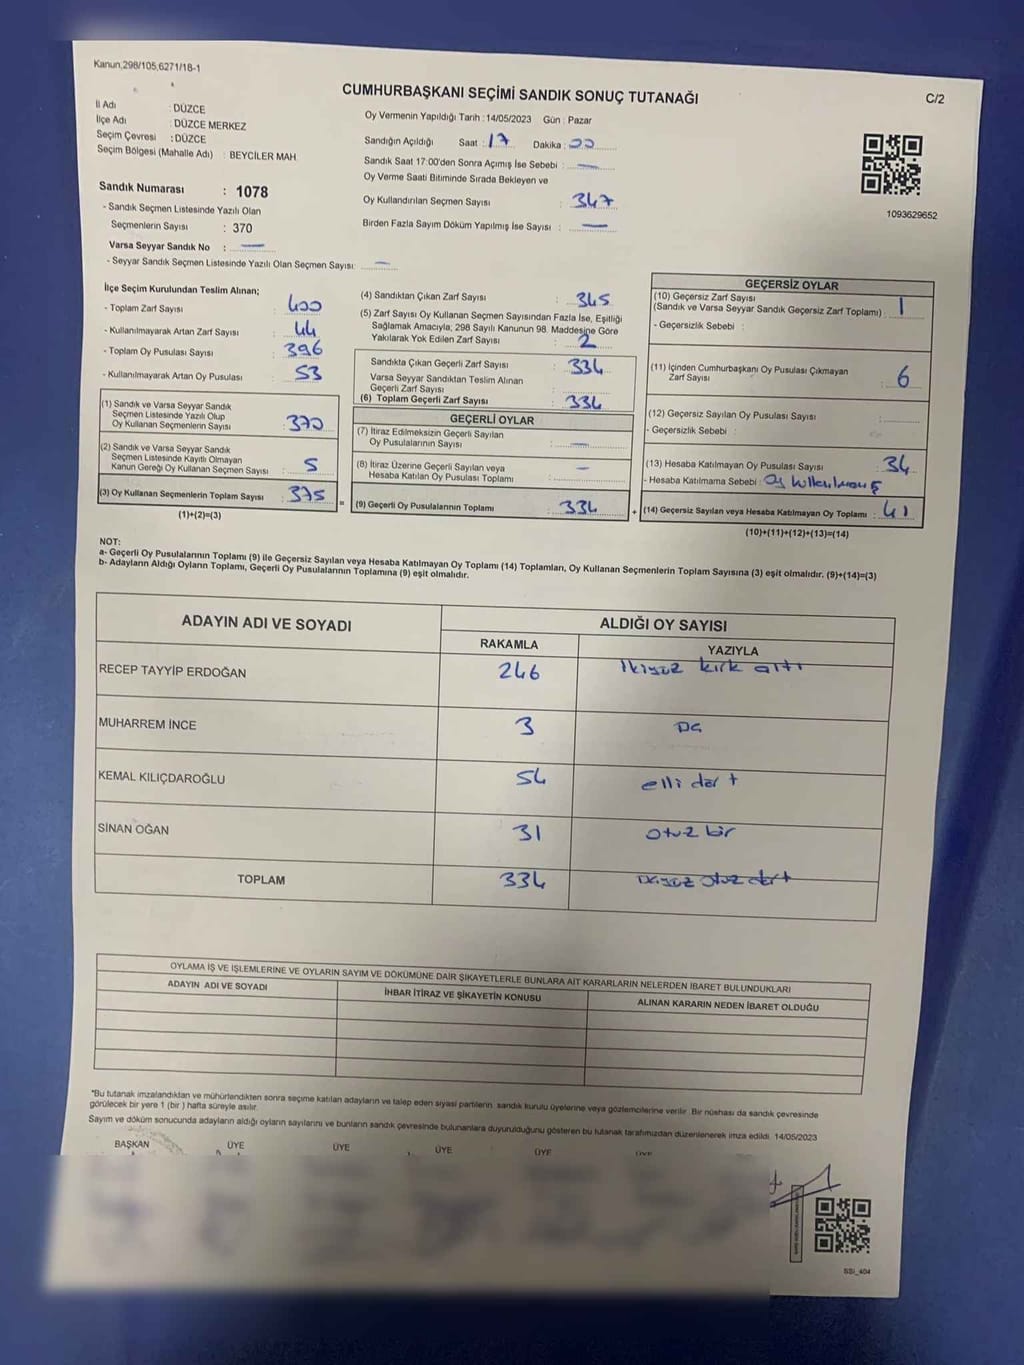 Kanun,298/105,6271/18-1
CUMHURBAŞKANI SEÇİMİ SANDIK SONUÇ TUTANAĞI
C/2
İl Adı : DÜZCE
İlçe Adı : DÜZCE MERKEZ
Seçim Çevresi : DÜZCE
Seçim Bölgesi (Mahalle Adı) : BEYCİLER MAH.
Sandık Numarası : 1078
- Sandık Seçmen Listesinde Yazılı Olan
Seçmenlerin Sayısı : 370
Varsa Seyyar Sandık No : —
- Seyyar Sandık Seçmen Listesinde Yazılı Olan Seçmen Sayısı: —
Oy Vermenin Yapıldığı Tarih : 14/05/2023 Gün : Pazar
Sandığın Açıldığı Saat : 17 Dakika :
Sandık Saat 17:00'den Sonra Açımış İse Sebebi : —
Oy Verme Saati Bitiminde Sırada Bekleyen ve
Oy Kullandırılan Seçmen Sayısı : 347
Birden Fazla Sayım Döküm Yapılmış İse Sayısı : —
1093629652
İlçe Seçim Kurulundan Teslim Alınan;
- Toplam Zarf Sayısı : 400
- Kullanılmayarak Artan Zarf Sayısı : 44
- Toplam Oy Pusulası Sayısı : 396
- Kullanılmayarak Artan Oy Pusulası : 53
(1) Sandık ve Varsa Seyyar Sandık
Seçmen Listesinde Yazılı Olup
Oy Kullanan Seçmenlerin Sayısı : 370
(2) Sandık ve Varsa Seyyar Sandık
Seçmen Listesinde Kayıtlı Olmayan
Kanun Gereği Oy Kullanan Seçmen Sayısı : 5
(3) Oy Kullanan Seçmenlerin Toplam Sayısı : 375
(1)+(2)=(3)
(4) Sandıktan Çıkan Zarf Sayısı : 345
(5) Zarf Sayısı Oy Kullanan Seçmen Sayısından Fazla İse, Eşitliği
Sağlamak Amacıyla, 298 Sayılı Kanunun 98. Maddesine Göre
Yakılarak Yok Edilen Zarf Sayısı : 2
Sandıkta Çıkan Geçerli Zarf Sayısı : 334
Varsa Seyyar Sandıktan Teslim Alınan
Geçerli Zarf Sayısı :
(6) Toplam Geçerli Zarf Sayısı : 334
GEÇERLİ OYLAR
(7) İtiraz Edilmeksizin Geçerli Sayılan
Oy Pusulalarının Sayısı : —
(8) İtiraz Üzerine Geçerli Sayılan veya
Hesaba Katılan Oy Pusulası Toplamı : —
= (9) Geçerli Oy Pusulalarının Toplamı : 334
GEÇERSİZ OYLAR
(10) Geçersiz Zarf Sayısı
(Sandık ve Varsa Seyyar Sandık Geçersiz Zarf Toplamı) : 1
- Geçersizlik Sebebi :
(11) İçinden Cumhurbaşkanı Oy Pusulası Çıkmayan
Zarf Sayısı : 6
(12) Geçersiz Sayılan Oy Pusulası Sayısı :
- Geçersizlik Sebebi :
(13) Hesaba Katılmayan Oy Pusulası Sayısı : 34
- Hesaba Katılmama Sebebi : Oy
+ (14) Geçersiz Sayılan veya Hesaba Katılmayan Oy Toplamı : 41
(10)+(11)+(12)+(13)=(14)
NOT:
a- Geçerli Oy Pusulalarının Toplamı (9) ile Geçersiz Sayılan veya Hesaba Katılmayan Oy Toplamı (14) Toplamları, Oy Kullanan Seçmenlerin Toplam Sayısına (3) eşit olmalıdır. (9)+(14)=(3)
b- Adayların Aldığı Oyların Toplamı, Geçerli Oy Pusulalarının Toplamına (9) eşit olmalıdır.
ADAYIN ADI VE SOYADI ALDIĞI OY SAYISI
RAKAMLA YAZIYLA
RECEP TAYYİP ERDOĞAN 246 ikiyüz kırk altı
MUHARREM İNCE 3
KEMAL KILIÇDAROĞLU 54 elli dört
SİNAN OĞAN 31 otuz bir
TOPLAM 334 otuz dört
OYLAMA İŞ VE İŞLEMLERİNE VE OYLARIN SAYIM VE DÖKÜMÜNE DAİR ŞİKAYETLERLE BUNLARA AİT KARARLARIN NELERDEN İBARET BULUNDUKLARI
ADAYIN ADI VE SOYADI İHBAR İTİRAZ VE ŞİKAYETİN KONUSU ALINAN KARARIN NEDEN İBARET OLDUĞU
*Bu tutanak imzalandıktan ve mühürlendikten sonra seçime katılan adayların ve talep eden siyasi partilerin sandık kurulu üyelerine veya gözlemcilerine verilir. Bir nüshası da sandık çevresinde
görülecek bir yere 1 (bir ) hafta süreyle asılır.
Sayım ve döküm sonucunda adayların aldığı oyların sayılarını ve bunların sandık çevresinde bulunanlara duyurulduğunu gösteren bu tutanak tarafımızdan düzenlenerek imza edildi. 14/05/2023
BAŞKAN ÜYE ÜYE ÜYE ÜYE ÜYE
SSİ_404